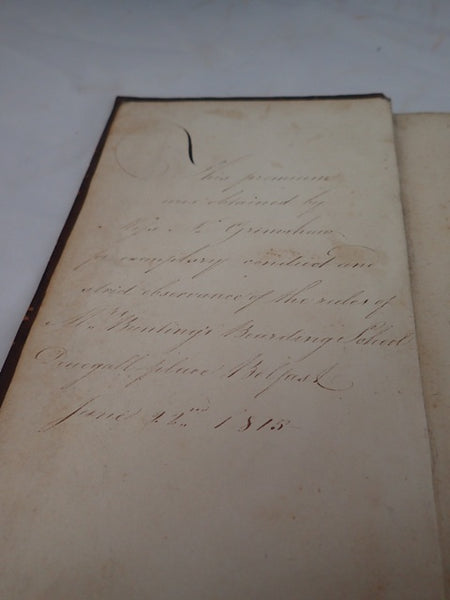 This premium
was obtained by
Miss N. Grimshaw
for exemplary conduct and
strict observance of the rules of
Mrs. Bunting's Boarding School
Donegall place Belfast
June 22nd 1815